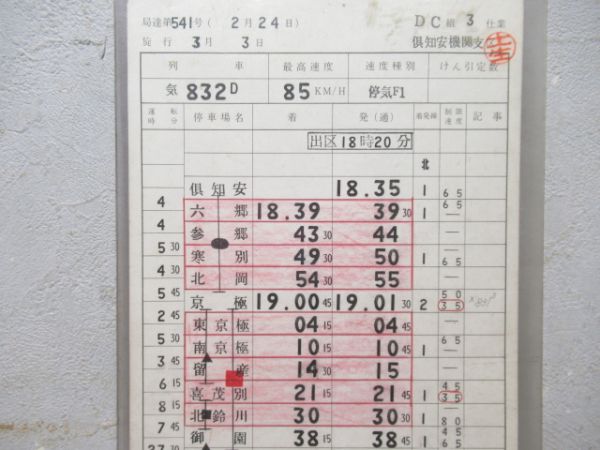 局達第541号 (2月24日) DC組 3 仕業
施行 3月 3日 倶知安機関支区
列車 最高速度 速度種別 けん引定数
気 832D 85KM/H 停気F1
運転時分 停車場名 着 発(通) 着発線 制限速度 記事
出区18時20分
北
倶知安 18.35 1 65
4 65
六郷 18.39 39 30 1 —
4
参郷 43 30 44 —
5 30
寒別 49 30 50 1 65
4
北岡 54 30 55 —
5 45
京極 19.00 45 19.01 30 2 50 35
2 45
東京極 04 15 04 45 —
5 30
南京極 10 15 10 45 1 65
3 45
留産 14 30 15 —
6 15
喜茂別 21 15 21 45 1 45 35
8 15
北鈴川 30 30 30 1 — 80
7 45
御園 38 15 38 45 1 45 65